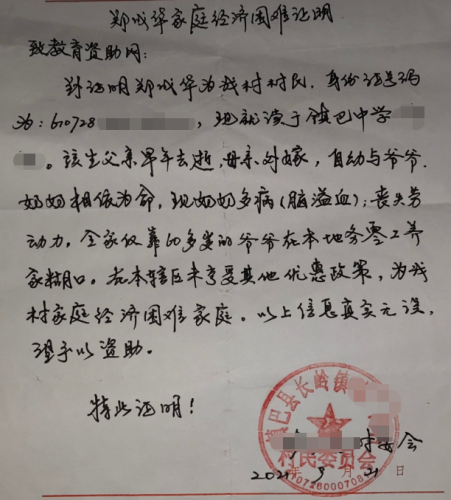 郑成华家庭经济困难证明
致教育资助网:
兹证明郑成华为我村村民,身份证号码
为:610728,现就读于镇巴中学
。该生父亲早年去逝,母亲对嫁,自幼与爷爷、
奶奶相依为命,现奶奶多病(脑溢血);丧失劳
动力,全家仅靠60多岁的爷爷在本地务零工养
家糊口。在本辖区未享受其他优惠政策,为我
村家庭经济困难家庭。以上信息真实无误,
望予以资助。
特此证明!
镇巴县长岭镇
村民委员会
村委会
2021年 月21日